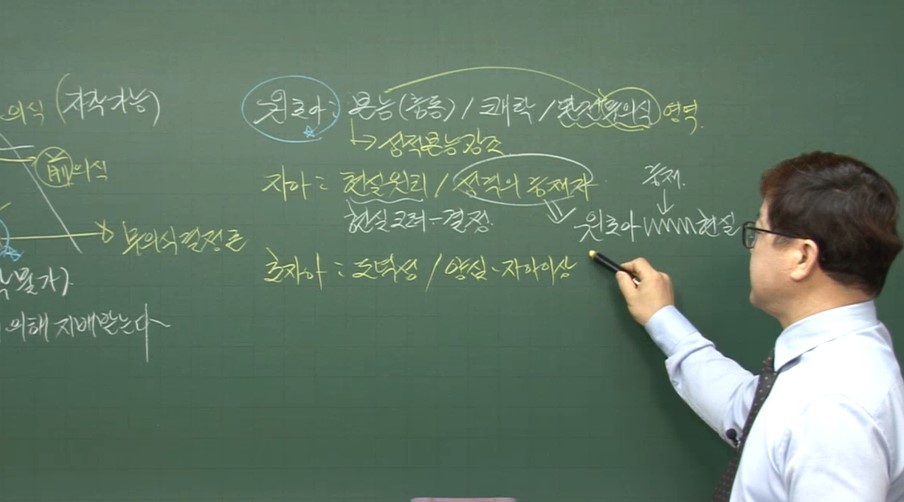 의식 (지각가능)
前의식
→ 무의식결정론
의해 지배받는다
원초아: 본능(충동) / 쾌락 / 완전무의식 영역.
↳ 성적본능강조
자아: 현실원리 / 성격의 중재자
현실고려-결정.
중재.
원초아 현실
초자아: 도덕성 / 양심·자아이상